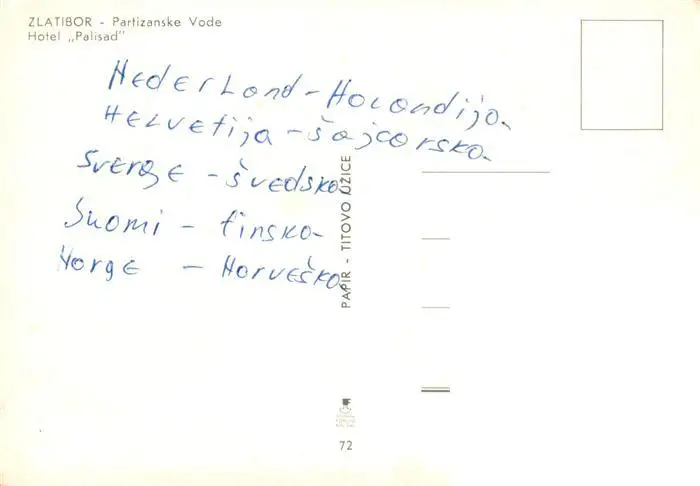 ZLATIBOR - Partizanske Vode
Hotel „Palisad"
Nederland - Holandija
Helvetija - šajcarska
Sverge - švedska
Suomi - finska
Norge - Norveška
PAPIR - TITOVO UŽICE
72